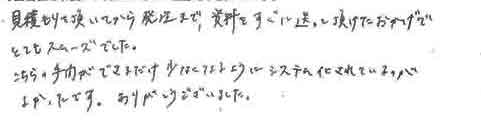 見積もりを頂いてから発注まで、資料をすぐに送って頂けたおかげで
とてもスムーズでした。
こちらの手間ができるだけ少なくなるようにシステム化されているのが
よかったです。ありがとうございました。